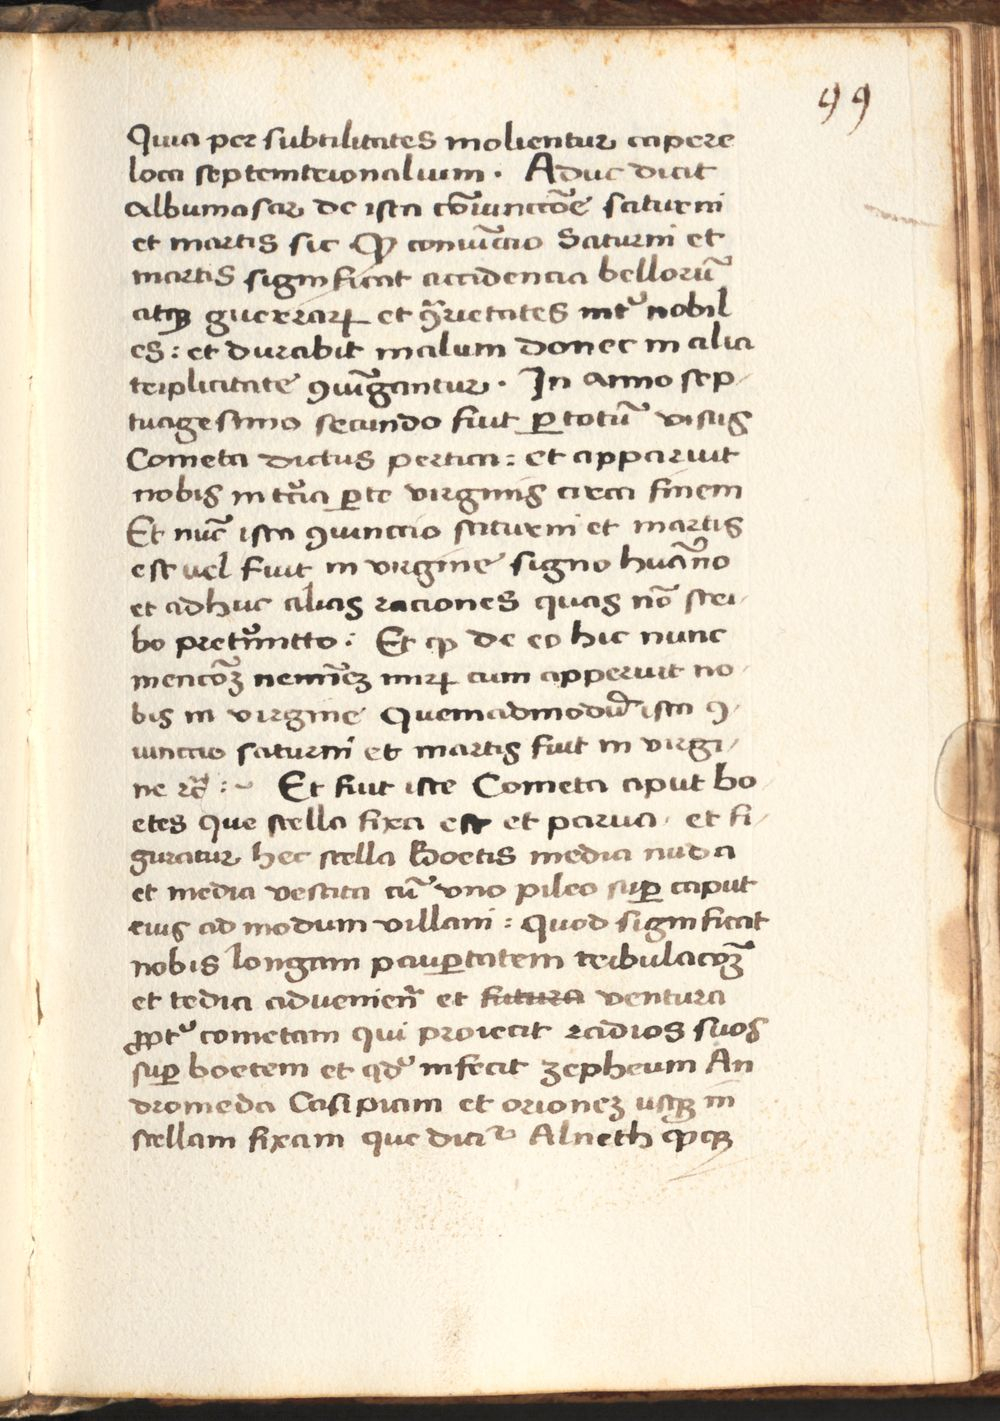 99
Quia per subtilitates molientur capere
loca septemtrionalium. Aduc dicit
Albumasar de ista cõiunccõe saturni
et martis sic Ꝙ coniũccio Saturni et
martis significat accidencia bellorũ
atqꝫ guerrarꝝ et ꝯ̃rietates int᷑ nobil
es: et durabit malum donec in alia
triplicitate ꝯiũgantur. In anno sep-
tuagesimo secundo fuit ꝑ totũ visus
Cometa dictus pertica: et apparuit
nobis in tc̃ia ꝑte virginis circa finem
Et nũc ista ꝯiunccio saturni et martis
est uel fuit in virgine signo humãno
et adhuc alias raciones quas nõ scri-
bo pretermitto: Et ꝙ de eo hic nunc
mencõꝫ
cum apperuit no-
bis in virgine Quemadmodũ ista ꝯ-
iunccio saturni et martis fuit in virgi-
ne ꝛc̃:~ Et fuit iste Cometa aput bo
etes que stella fixa est et parua. et fi-
guratur hec stella Boetis media nuda
et media vestita cũ vno pileo suꝑ caput
eius ad modum villani: Quod significat
nobis longam pauꝑtatem tribulacõꝫ
et tedia aduenien̄ et futura ventura
ꝓpt᷑ cometam qui proiecit radios suos
suꝑ boetem et qd᷑ infecit zepheum An
dromeda Casipiam et orioneꝫ usqꝫ in
stellam fixam que dicit᷑ Alneth ꝙqꝫ